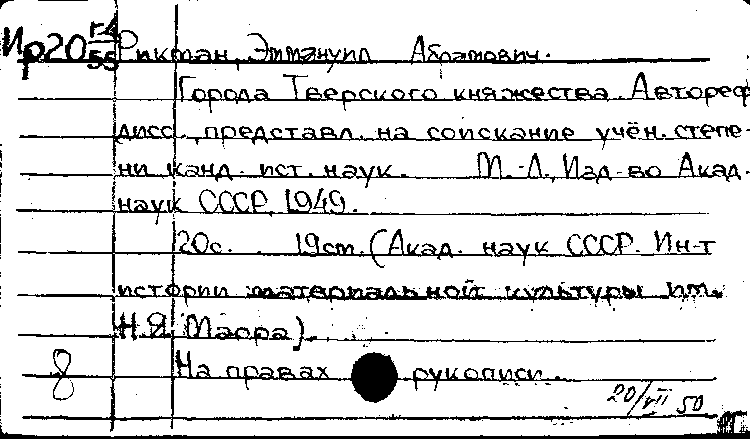 Ир20 г4/55 Рикман, Эммануил Абрамович.
Города Тверского княжества. Автореф
дисс., представл. на соискание учён. степе-
ни канд. ист. наук. М.-Л., Изд-во Акад.
наук СССР, 1949.
20с. 19см. (Акад. наук СССР. Ин-т
истории материальной культуры им.
Н.Я. Марра).
8 На правах рукописи.
20/VII 50